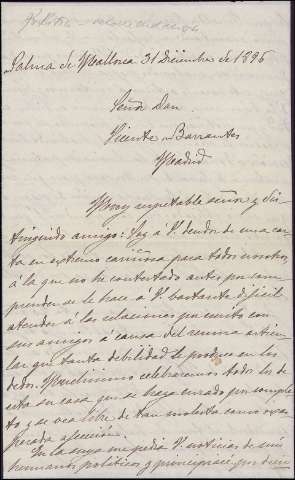 Palma de Mallorca 31 Diciembre de 1896
Señor Don
Vicente Barrantes
Madrid
Muy respetable señor y dis-
tinguido amigo: Soy á V. deudor de una car-
ta en extremo cariñosa para todos nosotros,
á la que no he contestado antes por com-
prender se le hace á V. bastante dificil
atender á las relaciones por escrito con
sus amigos á causa del reuma articu-
lar que tanta debilidad le produce en los
dedos. Muchisimo celebraremos todos los de
esta su casa que se haya curado por comple-
to y se vea libre de tan molesta como
pesada afección.
En la suya me pedia V. noticias de mis
hermanos politicos y principiaré por